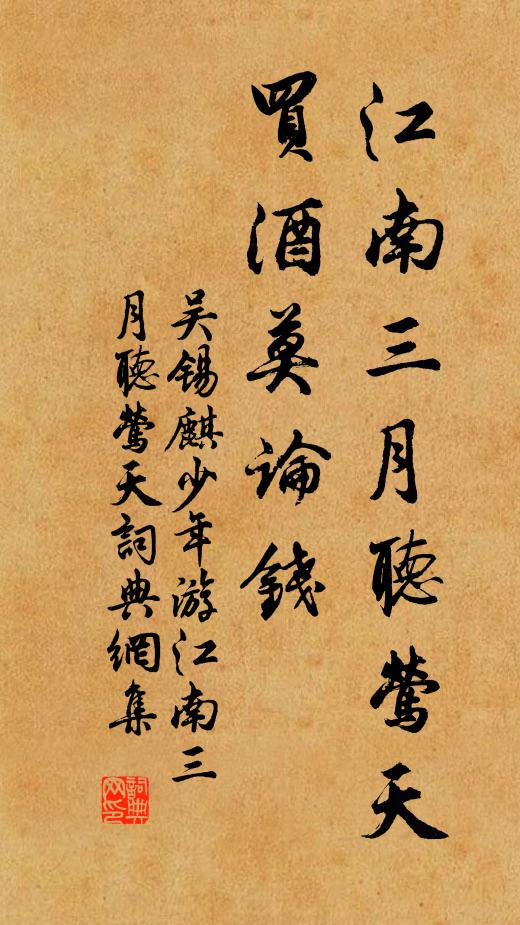 江南三月聽鶯天
買酒莫論錢
吳錫麒少年游江南三
月聽鶯天詞典網集
詞典
网印